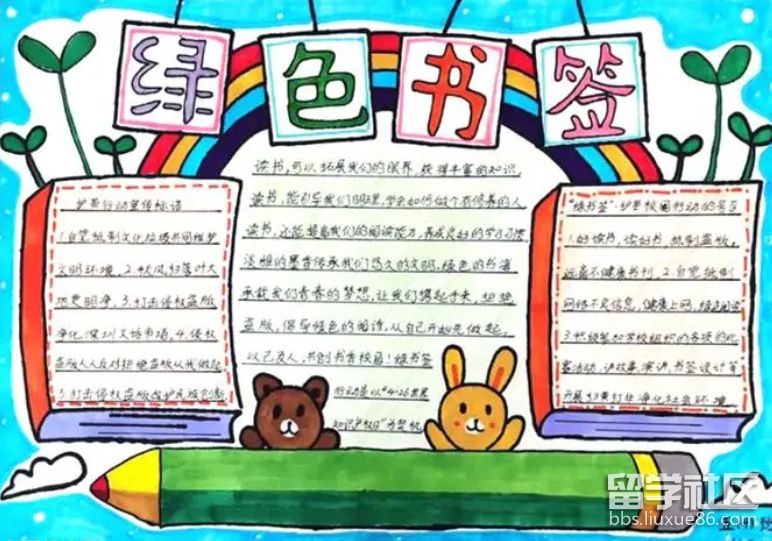 绿色书签
护苗行动宣传标语
1.自觉抵制文化垃圾共同维护
文明环境，2.秋风扫落叶大
地更明净，3.打击侵权盗版
净化深圳文化市场，4.侵权
盗版人人反对拒绝盗版从我做起
5.打击侵权盗版
读书，可以拓展我们的眼界，获得丰富的知识，
读书，能引导我们明理，学会如何做个有修养的人
读书，还能提高我们的阅读能力，养成良好的学习习惯
淡雅的墨香传承我们悠久的文明，绿色的书海
承载我们青春的梦想，让我们携起手来，拒绝
盗版，倡导绿色的阅读，从自己开始先做起，
以己及人，共创书香校园！绿书签
行动是以"4·26世界
知识产权日"为契机
"绿书签"·护苗校园行动的号召
1.好读书，读好书，抵制盗版，
远离不健康书刊，2.自觉抵制
网络不良信息，健康上网，绿色阅读
3.积极参加学校组织的各项的比
赛活动，讲故事，演讲，书签设计等
开展扫黄打非净化社会环境
留学社区
bbs.liuxue86.com